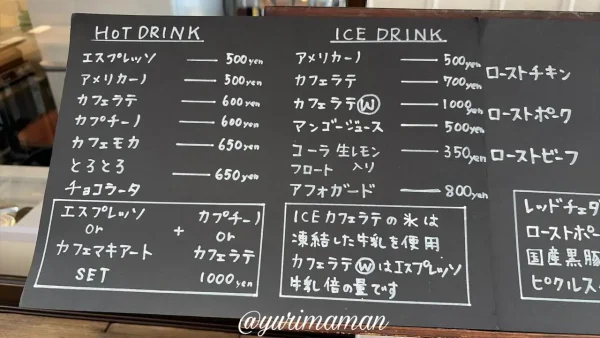 HOT DRINK
エスプレッソ 500yen
アメリカーノ 500yen
カフェラテ 600yen
カプチーノ 600yen
カフェモカ 650yen
とろとろ
チョコラータ 650yen
エスプレッソ
or
カフェマキアート
+
カプチーノ
or
カフェラテ
SET 1000yen
ICE DRINK
アメリカーノ 500yen
カフェラテ 700yen
カフェラテⓌ 1000yen
マンゴージュース 500yen
コーラ 生レモン 350yen
フロート 入り
アフォガード 800yen
ICEカフェラテの氷は
凍結した牛乳を使用
カフェラテⓌはエスプレッソ
牛乳倍の量です
ローストチキン
ローストポーク
ローストビーフ
レッドチェダ
ローストポー
国産黒豚
ピクルス
@yurimaman